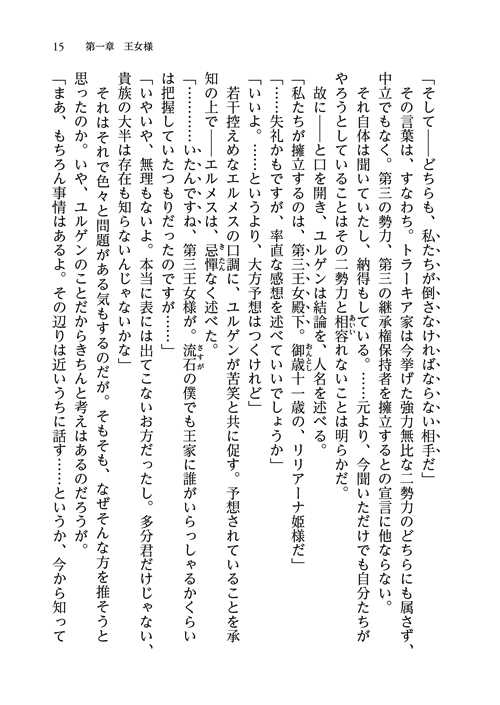 15　第一章　王女様
「そして――どちらも、私たちが倒さなければならない相手だ」
　その言葉は、すなわち。トラーキア家は今挙げた強力無比な二勢力のどちらにも属さず、
中立でもなく。第三の勢力、第三の継承権保持者を擁立するとの宣言に他ならない。
　それ自体は聞いていたし、納得もしている。……元より、今聞いただけでも自分たちが
やろうとしていることはその二勢力と相容れないことは明らかだ。
　故に――と口を開き、ユルゲンは結論を、人名を述べる。
「私たちが擁立するのは、第三王女殿下。御歳十一歳の、リリアーナ姫様だ」
「……失礼かもですが、率直な感想を述べていいでしょうか」
「いいよ。……というより、大方予想はつくけれど」
　若干控えめなエルメスの口調に、ユルゲンが苦笑と共に促す。予想されていることを承
知の上で――エルメスは、忌憚なく述べた。
「…………いたんですね、第三王女様が。流石の僕でも王家に誰がいらっしゃるかくらい
は把握していたつもりだったのですが……」
「いやいや、無理もないよ。本当に表には出てこないお方だったし。多分君だけじゃない、
貴族の大半は存在も知らないんじゃないかな」
　それはそれで色々と問題がある気もするのだが。そもそも、なぜそんな方を推そうと
思ったのか。いや、ユルゲンのことだからきちんと考えはあるのだろうが。
「まあ、もちろん事情はあるよ。その辺りは近いうちに話す……というか、今から知って